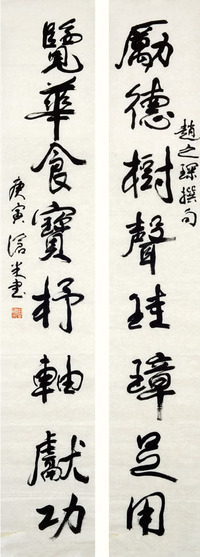 趙之琛撰句
厲德樹聲珪璋足用
覽華食寶杼軸獻功
庚寅 書